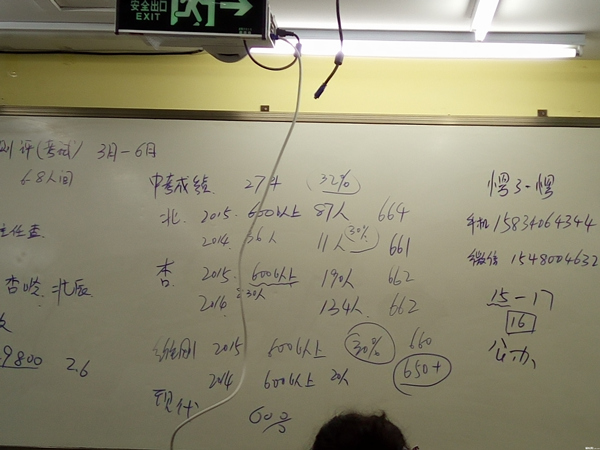 安全出口
EXIT
测评(考试) 3月-6月
6-8人间
中考成绩 27中 (32%)
北 2015 600以上 87人 664
2014 36人 11人 30% 661
杏 2015 600以上 190人 662
2014 30人 134人 662
2015 600以上 30% 660
2014 600以上 20人 650+
现代 60多
主任查
杏岭 北辰
9800 2.6
手机 15834064344
微信 1548004632
15-17
16
公办